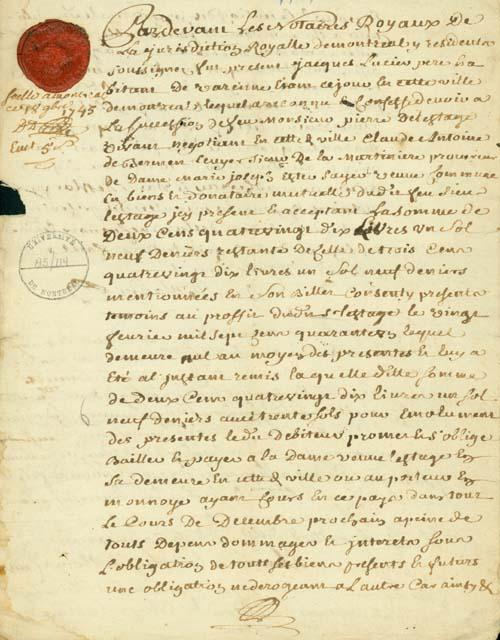 Pardevant Les Notaires Royaux De
La jurisdiction Royalle de montreal y residents
soussignez fut present jacques Lucien pere ha
bitant De varenne Etant ce jour En cette ville
de montreal Lequel a reconnu & Confesse devoir a
La succession de feu Monsieur pierre De Lestage
vivant negotiant en cette d. ville Claude Antoine
de Bermen Ecuyer Sieur De La Martiniere procureur
de Dame marie joseph Sayer veuve Commune
En biens & Donataire mutuelle dudit feu Sieur
Lestage icy present & acceptant La somme de
Deux Cens quatrevingt dix Livres un sol
neuf Deniers restante De Celle de trois Cens
quatrevingt dix livres un sol neuf deniers
mentionnées En son Billet Consenty presents
temoins au proffit dudit Sr Lestage le vingt
fevrier mil sept Cens quarante lequel
demeure nul au moyen des presentes & luy a
Eté a l'instant remis laquelle ditte somme
de Deux Cens quatrevingt dix livres un sol
neuf deniers avec trente sols pour Emolument
des presentes le d. Debiteur promet & s'oblige
Bailler & payer a la Dame veuve Lestage En
sa demeure En cette d. ville ou au porteur En
monnoye ayant Cours En ce pays dans tout
Le Cours De Decembre prochain apeine de
touts Depens dommages & interets sous
L'obligation de touts ses biens presents & futurs
une obligation ne derogeant a L'autre Car ainsy &c
Scellé a montreal
1745
UNIVERSITÉ
DE MONTRÉAL